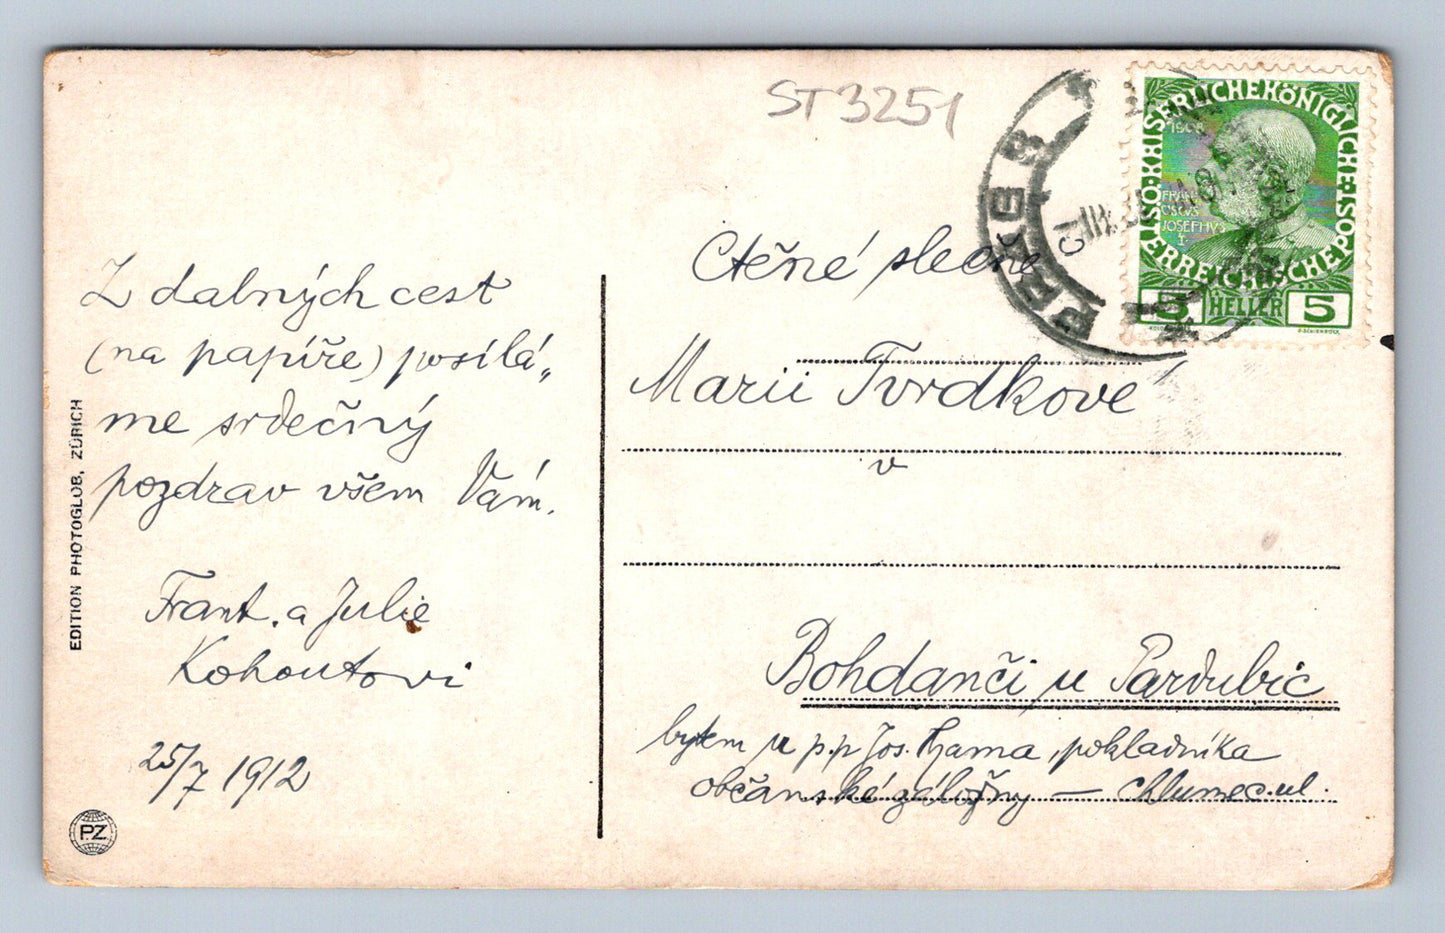 ST3251
Z dalných cest
(na papíře) posílá„
me srdečný
pozdrav všem Vám.
Frant. a Julie
Kohoutovi
25/7 1912
EDITION PHOTOGLOB, ZÜRICH
P.Z.
KAISERLICHE KÖNIGLICHE
ÖSTERREICHISCHE POST
1908
FRAN
CISCVS
JOSEPHVS
I
5 HELLER 5
Ctěné slečně
Marii Tvrdkové
v
Bohdanči u Pardubic
bytem u p.p Jos. , pokladníka
občanské záložny — Chlumec. ul.